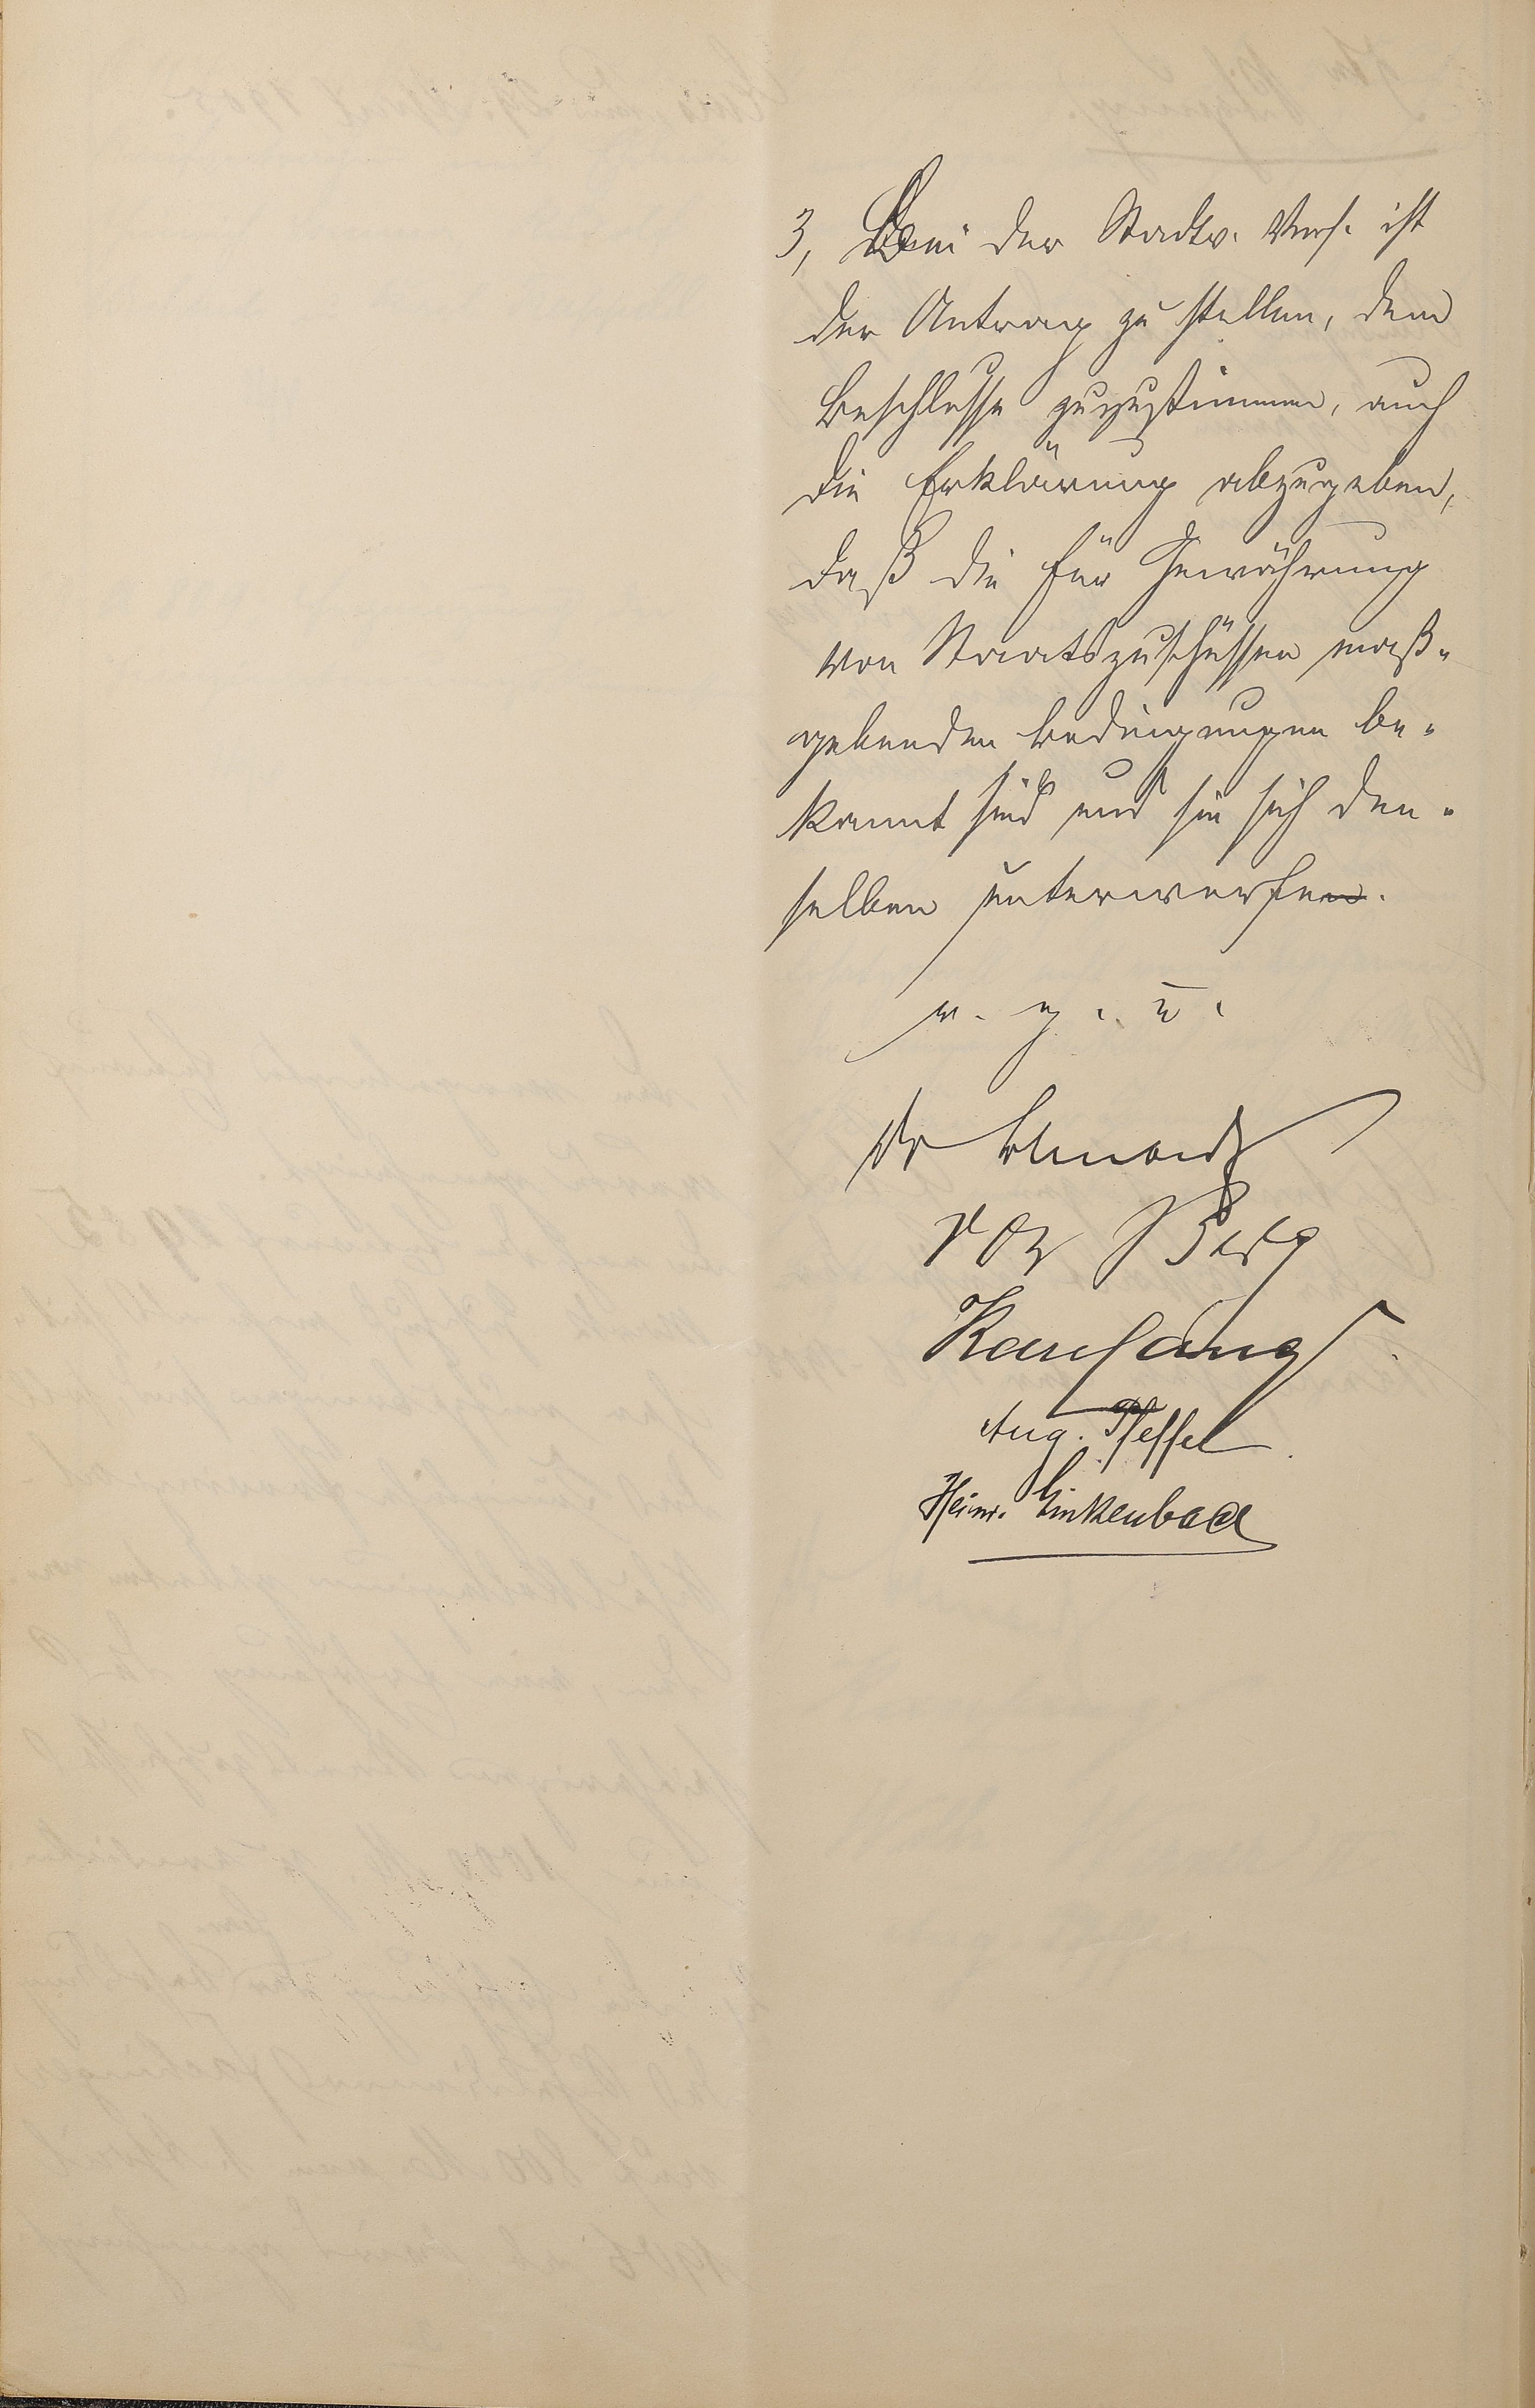 3, Bei der Stadtv. Vers. ist
der Antrag zu stellen, dem
Beschlusse zuzustimmen, auch
die Erklärung abzugeben,
daß die für Gewährung
von Staatszuschüssen maß-
gebenden Bedingungen be-
kannt sind und sie sich den-
selben unterwerfen.
v. g. u.
Dr
von Berg
Aug. Pfeffel
Heinr. Linkenbach